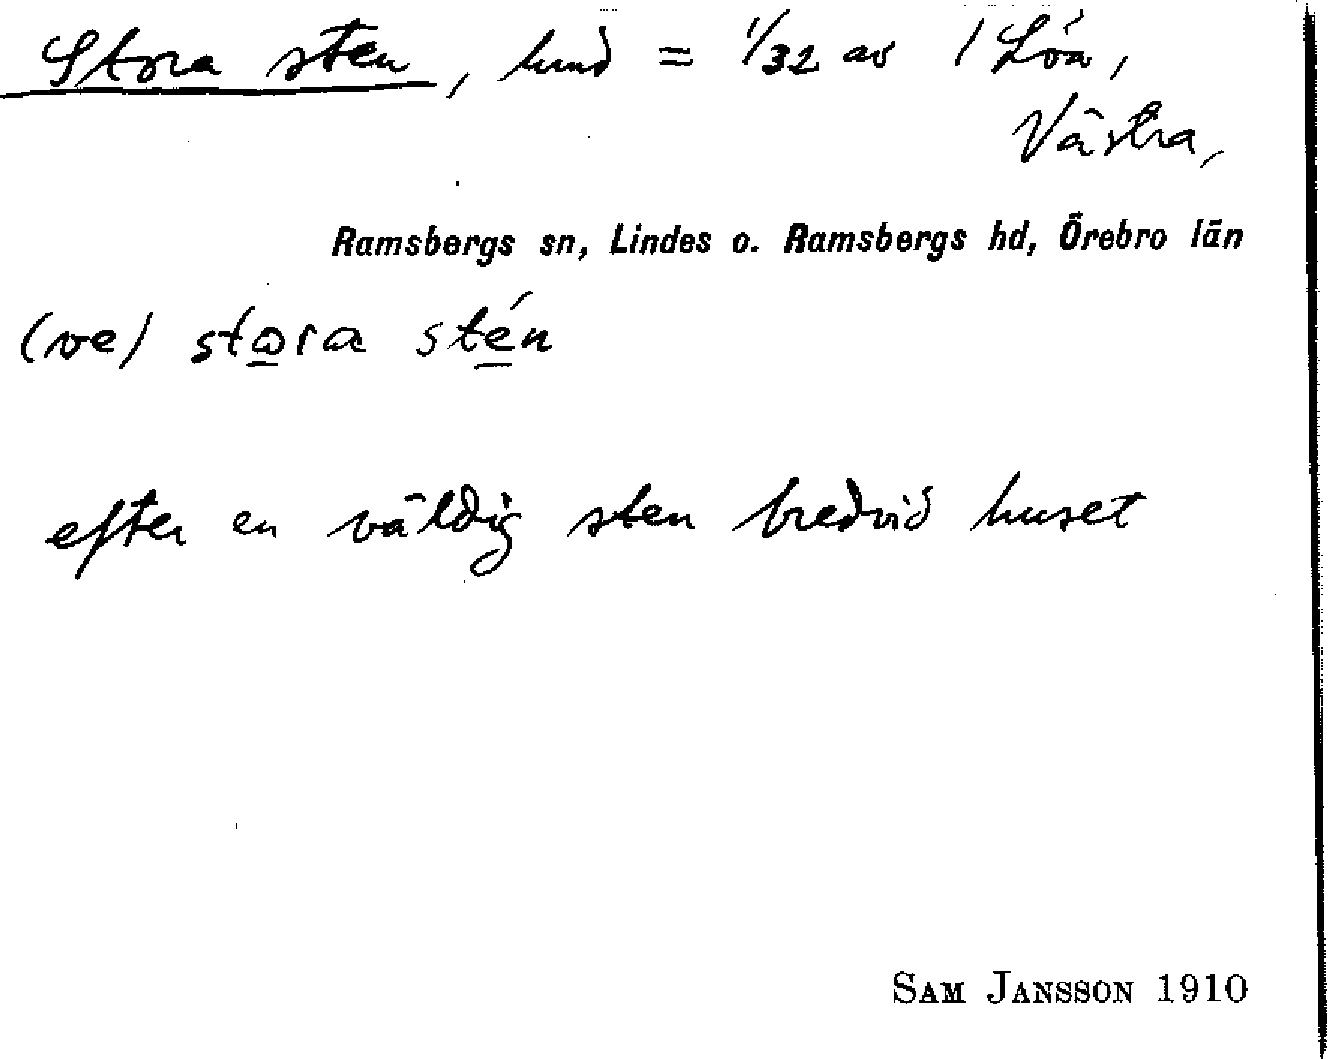 Stora sten, lund = 1/32 av 1 Lóa,
Västra,
Ramsbergs sn, Lindes o. Ramsbergs hd, Örebro län
(ve) stora stén
efter en väldig sten bredvid huset
SAM JANSSON 1910